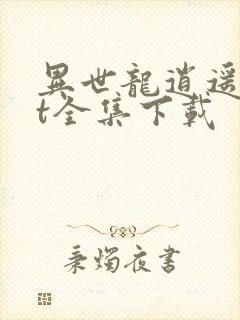 異世龍逍遥
t全集下載
秉燭夜書